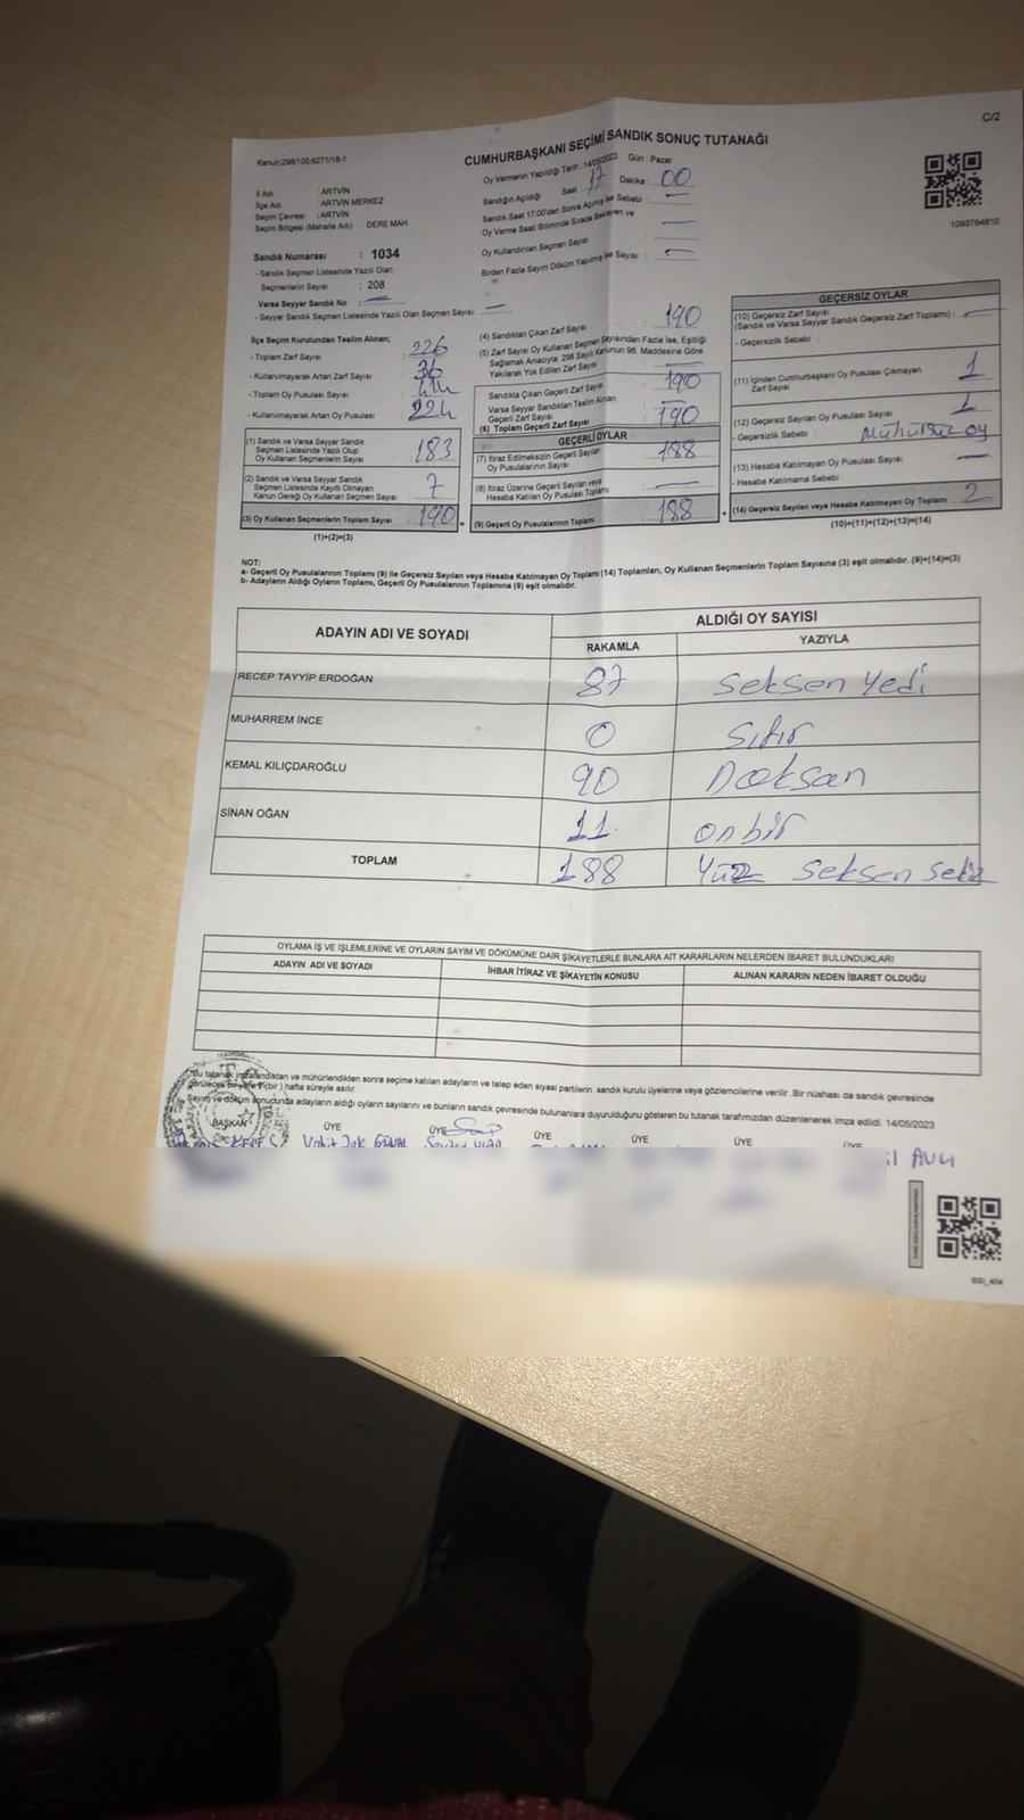 C/2
Kanun:298/100,6271/18-1
CUMHURBAŞKANI SEÇİMİ SANDIK SONUÇ TUTANAĞI
Oy Vermenin Yapıldığı Tarih : 14/05/2023 Gün : Pazar
İl Adı ARTVİN
İlçe Adı ARTVİN MERKEZ
Seçim Çevresi : ARTVİN
Seçim Bölgesi (Mahalle Adı) DERE MAH.
Sandığın Açıldığı Saat 17 Dakika 00
Sandık Saat 17:00'dan Sonra Açılmış İse Sebebi
Oy Verme Saati Bitiminde Sırada Bekleyen ve
Oy Kullandırılan Seçmen Sayısı
Birden Fazla Sayım Döküm Yapılmış İse Sayısı
Sandık Numarası : 1034
- Sandık Seçmen Listesinde Yazılı Olan
Seçmenlerin Sayısı : 208
Varsa Seyyar Sandık No :
- Seyyar Sandık Seçmen Listesinde Yazılı Olan Seçmen Sayısı
İlçe Seçim Kurulundan Teslim Alınan;
- Toplam Zarf Sayısı 226
- Kullanılmayarak Artan Zarf Sayısı 36
- Toplam Oy Pusulası Sayısı
- Kullanılmayarak Artan Oy Pusulası 224
(1) Sandık ve Varsa Seyyar Sandık
Seçmen Listesinde Yazılı Olup
Oy Kullanan Seçmenlerin Sayısı 183
(2) Sandık ve Varsa Seyyar Sandık
Seçmen Listesinde Kayıtlı Olmayan
Kanun Gereği Oy Kullanan Seçmen Sayısı 7
(3) Oy Kullanan Seçmenlerin Toplam Sayısı 190
(1)+(2)=(3)
(4) Sandıktan Çıkan Zarf Sayısı 190
(5) Zarf Sayısı Oy Kullanan Seçmen Sayısından Fazla İse, Eşitliği
Sağlamak Amacıyla 298 Sayılı Kanunun 98. Maddesine Göre
Yakılarak Yok Edilen Zarf Sayısı
Sandıkta Çıkan Geçerli Zarf Sayısı 190
Varsa Seyyar Sandıktan Teslim Alınan
Geçerli Zarf Sayısı
(6) Toplam Geçerli Zarf Sayısı 190
GEÇERLİ OYLAR
(7) İtiraz Edilmeksizin Geçerli Sayılan
Oy Pusulalarının Sayısı 188
(8) İtiraz Üzerine Geçerli Sayılan veya
Hesaba Katılan Oy Pusulası Toplamı
(9) Geçerli Oy Pusulalarının Toplamı 188
GEÇERSİZ OYLAR
(10) Geçersiz Zarf Sayısı
(Sandık ve Varsa Seyyar Sandık Geçersiz Zarf Toplamı) :
- Geçersizlik Sebebi :
(11) İçinden Cumhurbaşkanı Oy Pusulası Çıkmayan
Zarf Sayısı 1
(12) Geçersiz Sayılan Oy Pusulası Sayısı 1
- Geçersizlik Sebebi Mühürsüz oy
(13) Hesaba Katılmayan Oy Pusulası Sayısı
- Hesaba Katılmama Sebebi
(14) Geçersiz Sayılan veya Hesaba Katılmayan Oy Toplamı 2
(10)+(11)+(12)+(13)=(14)
NOT:
a- Geçerli Oy Pusulalarının Toplamı (9) ile Geçersiz Sayılan veya Hesaba Katılmayan Oy Toplamı (14) Toplamları, Oy Kullanan Seçmenlerin Toplam Sayısına (3) eşit olmalıdır. (9)+(14)=(3)
b- Adayların Aldığı Oyların Toplamı, Geçerli Oy Pusulalarının Toplamına (9) eşit olmalıdır.
ADAYIN ADI VE SOYADI ALDIĞI OY SAYISI
RAKAMLA YAZIYLA
RECEP TAYYİP ERDOĞAN 87 Seksen yedi
MUHARREM İNCE 0 Sıfır
KEMAL KILIÇDAROĞLU 90 Doksan
SİNAN OĞAN 11 onbir
TOPLAM 188 Yüz seksen sekiz
OYLAMA İŞ VE İŞLEMLERİNE VE OYLARIN SAYIM VE DÖKÜMÜNE DAİR ŞİKAYETLERLE BUNLARA AİT KARARLARIN NELERDEN İBARET BULUNDUKLARI
ADAYIN ADI VE SOYADI İHBAR İTİRAZ VE ŞİKAYETİN KONUSU ALINAN KARARIN NEDEN İBARET OLDUĞU
Bu tutanak imzalandıktan ve mühürlendikten sonra seçime katılan adayların ve talep eden siyasi partilerin sandık kurulu üyelerine veya gözlemcilerine verilir. Bir nüshası da sandık çevresinde
(bir) hafta süreyle asılır.
Sayım ve döküm sonucunda adayların aldığı oyların sayılarını ve bunların sandık çevresinde bulunanlara duyurulduğunu gösteren bu tutanak tarafımızdan düzenlenerek imza edildi. 14/05/2023
BAŞKAN ÜYE ÜYE ÜYE ÜYE ÜYE ÜYE